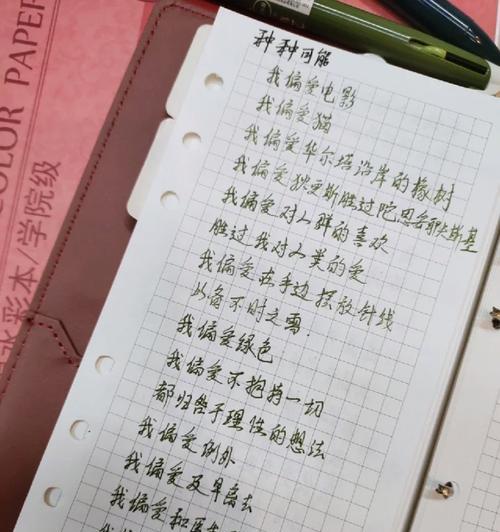 COLOR PAPER
水彩本/学院级
种种可能
我偏爱电影
我偏爱猫
我偏爱华尔塔沿岸的橡树
我偏爱狄更斯胜过陀思妥耶夫斯基
我偏爱对人群的喜欢
胜过我对人类的爱
我偏爱在手边摆放针线
以备不时之需.
我偏爱绿色
我偏爱不抱持一切
都归咎于理性的想法
我偏爱例外
我偏爱及早离去
我偏爱和医